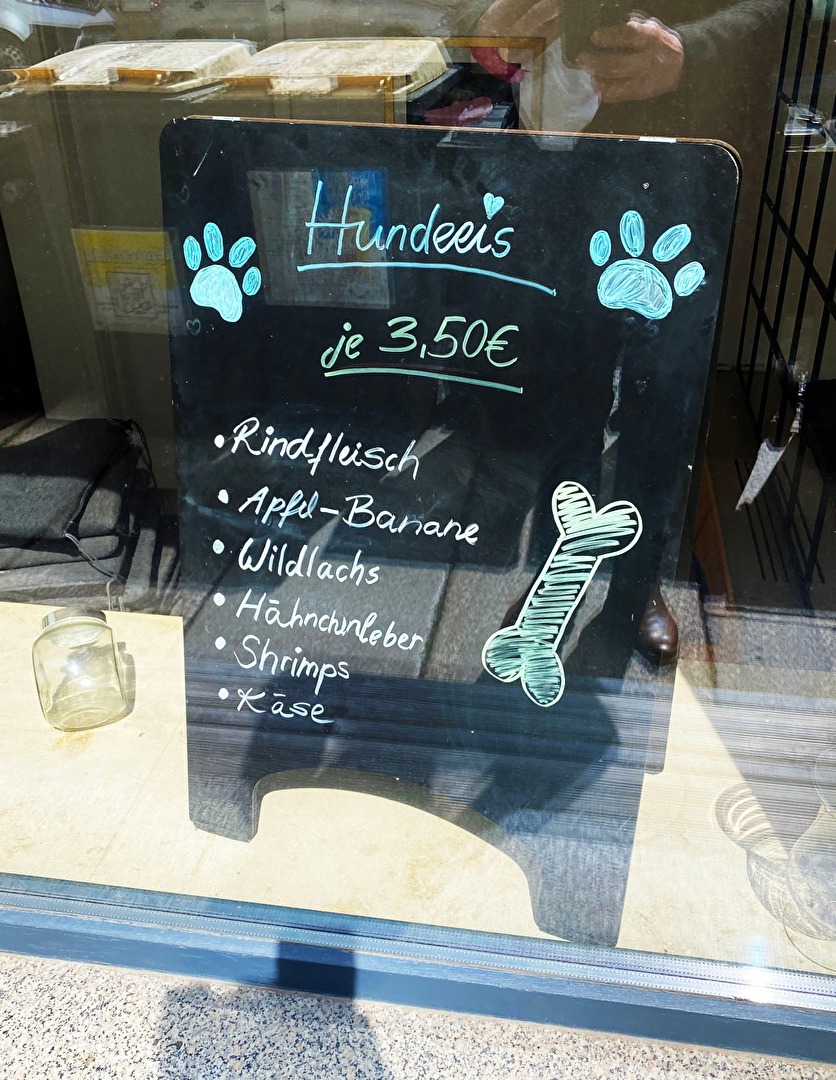 Hundeeis
je 3,50€
• Rindfleisch
• Apfel-Banane
• Wildlachs
• Hähnchenleber
• Shrimps
• Käse